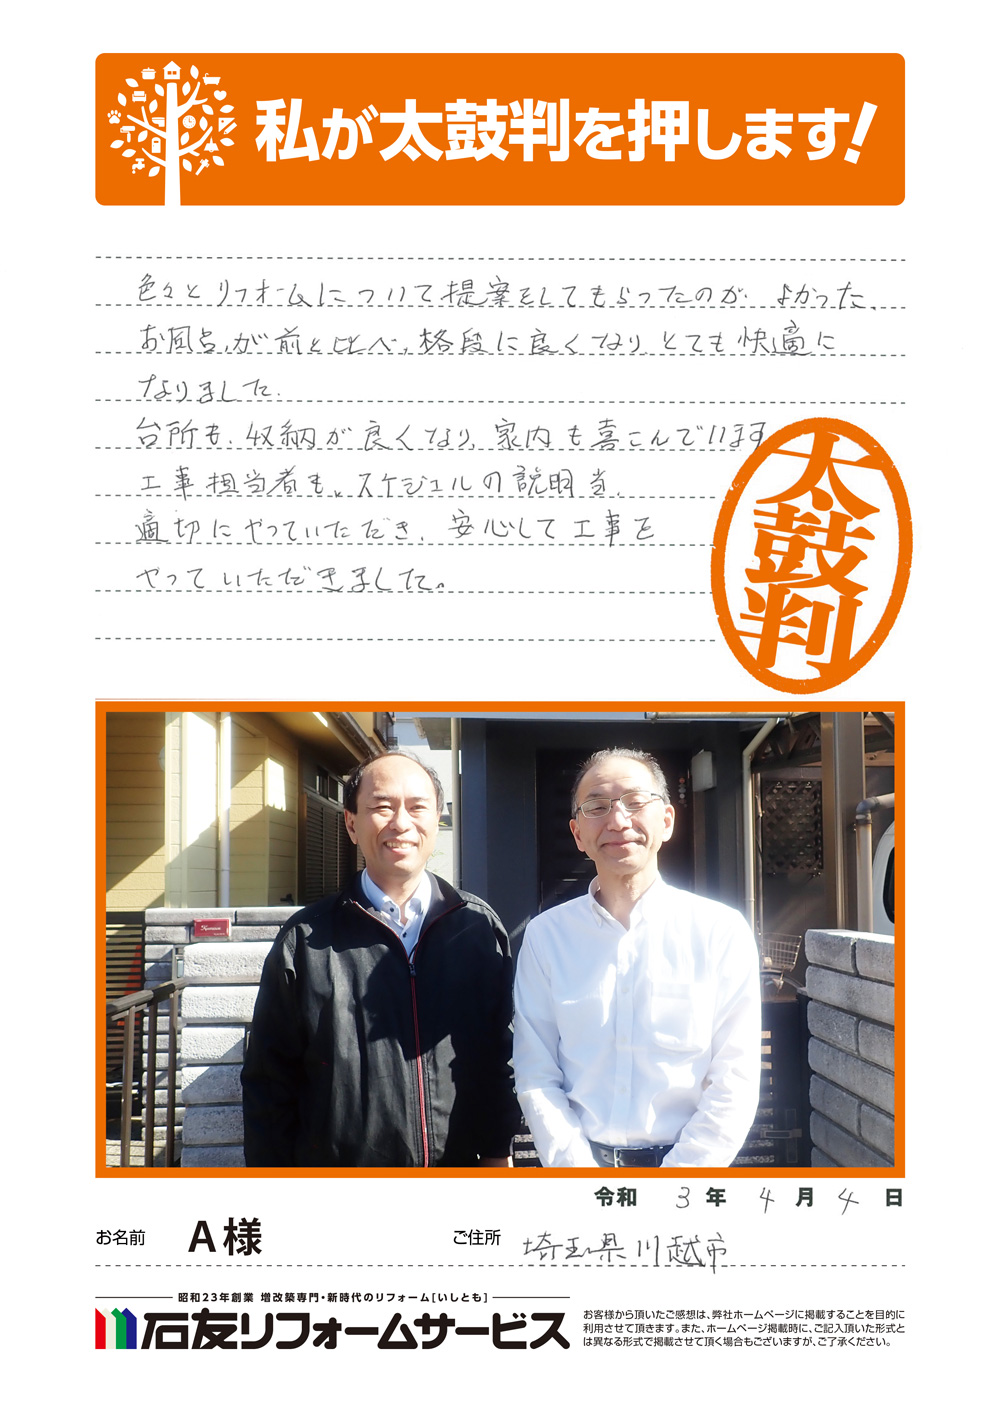 私が太鼓判を押します!
色々とリフォームについて提案をしてもらったのが、よかった。
お風呂が前と比べ、格段に良くなり、とても快適に
なりました。
台所も、収納が良くなり、家内も喜こんでいます
工事担当者も、スケジェルの説明当、
適切にやっていただき、安心して工事を
やっていただきました。
太鼓判
令和 3 年 4 月 4 日
お名前 A様 ご住所 埼玉県川越市
昭和23年創業 増改築専門・新時代のリフォーム[いしとも]
石友リフォームサービス
お客様から頂いたご感想は、弊社ホームページに掲載することを目的に
利用させて頂きます。また、ホームページ掲載時に、ご記入頂いた形式と
は異なる形式で掲載させて頂く場合もございますが、ご了承ください。